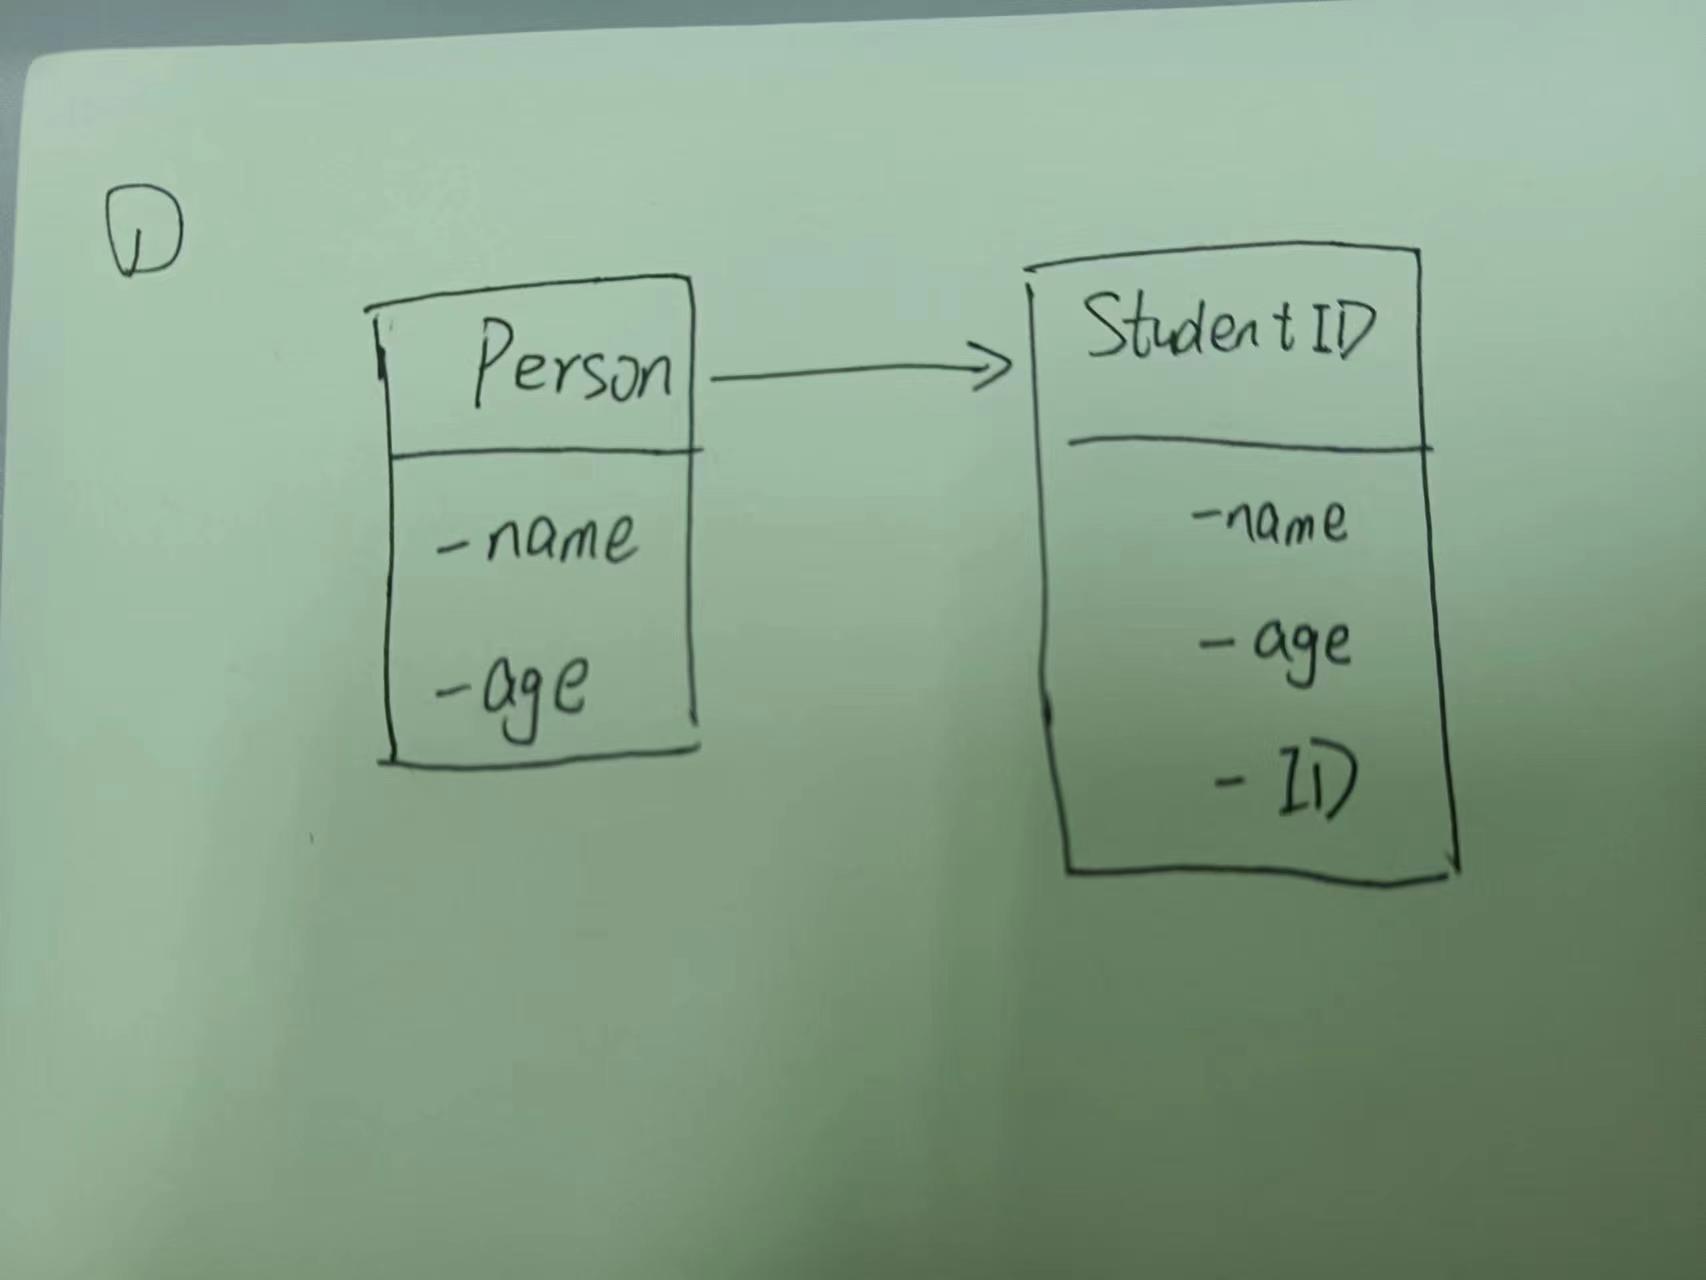 ①
Person
- name
- age
StudentID
- name
- age
- ID